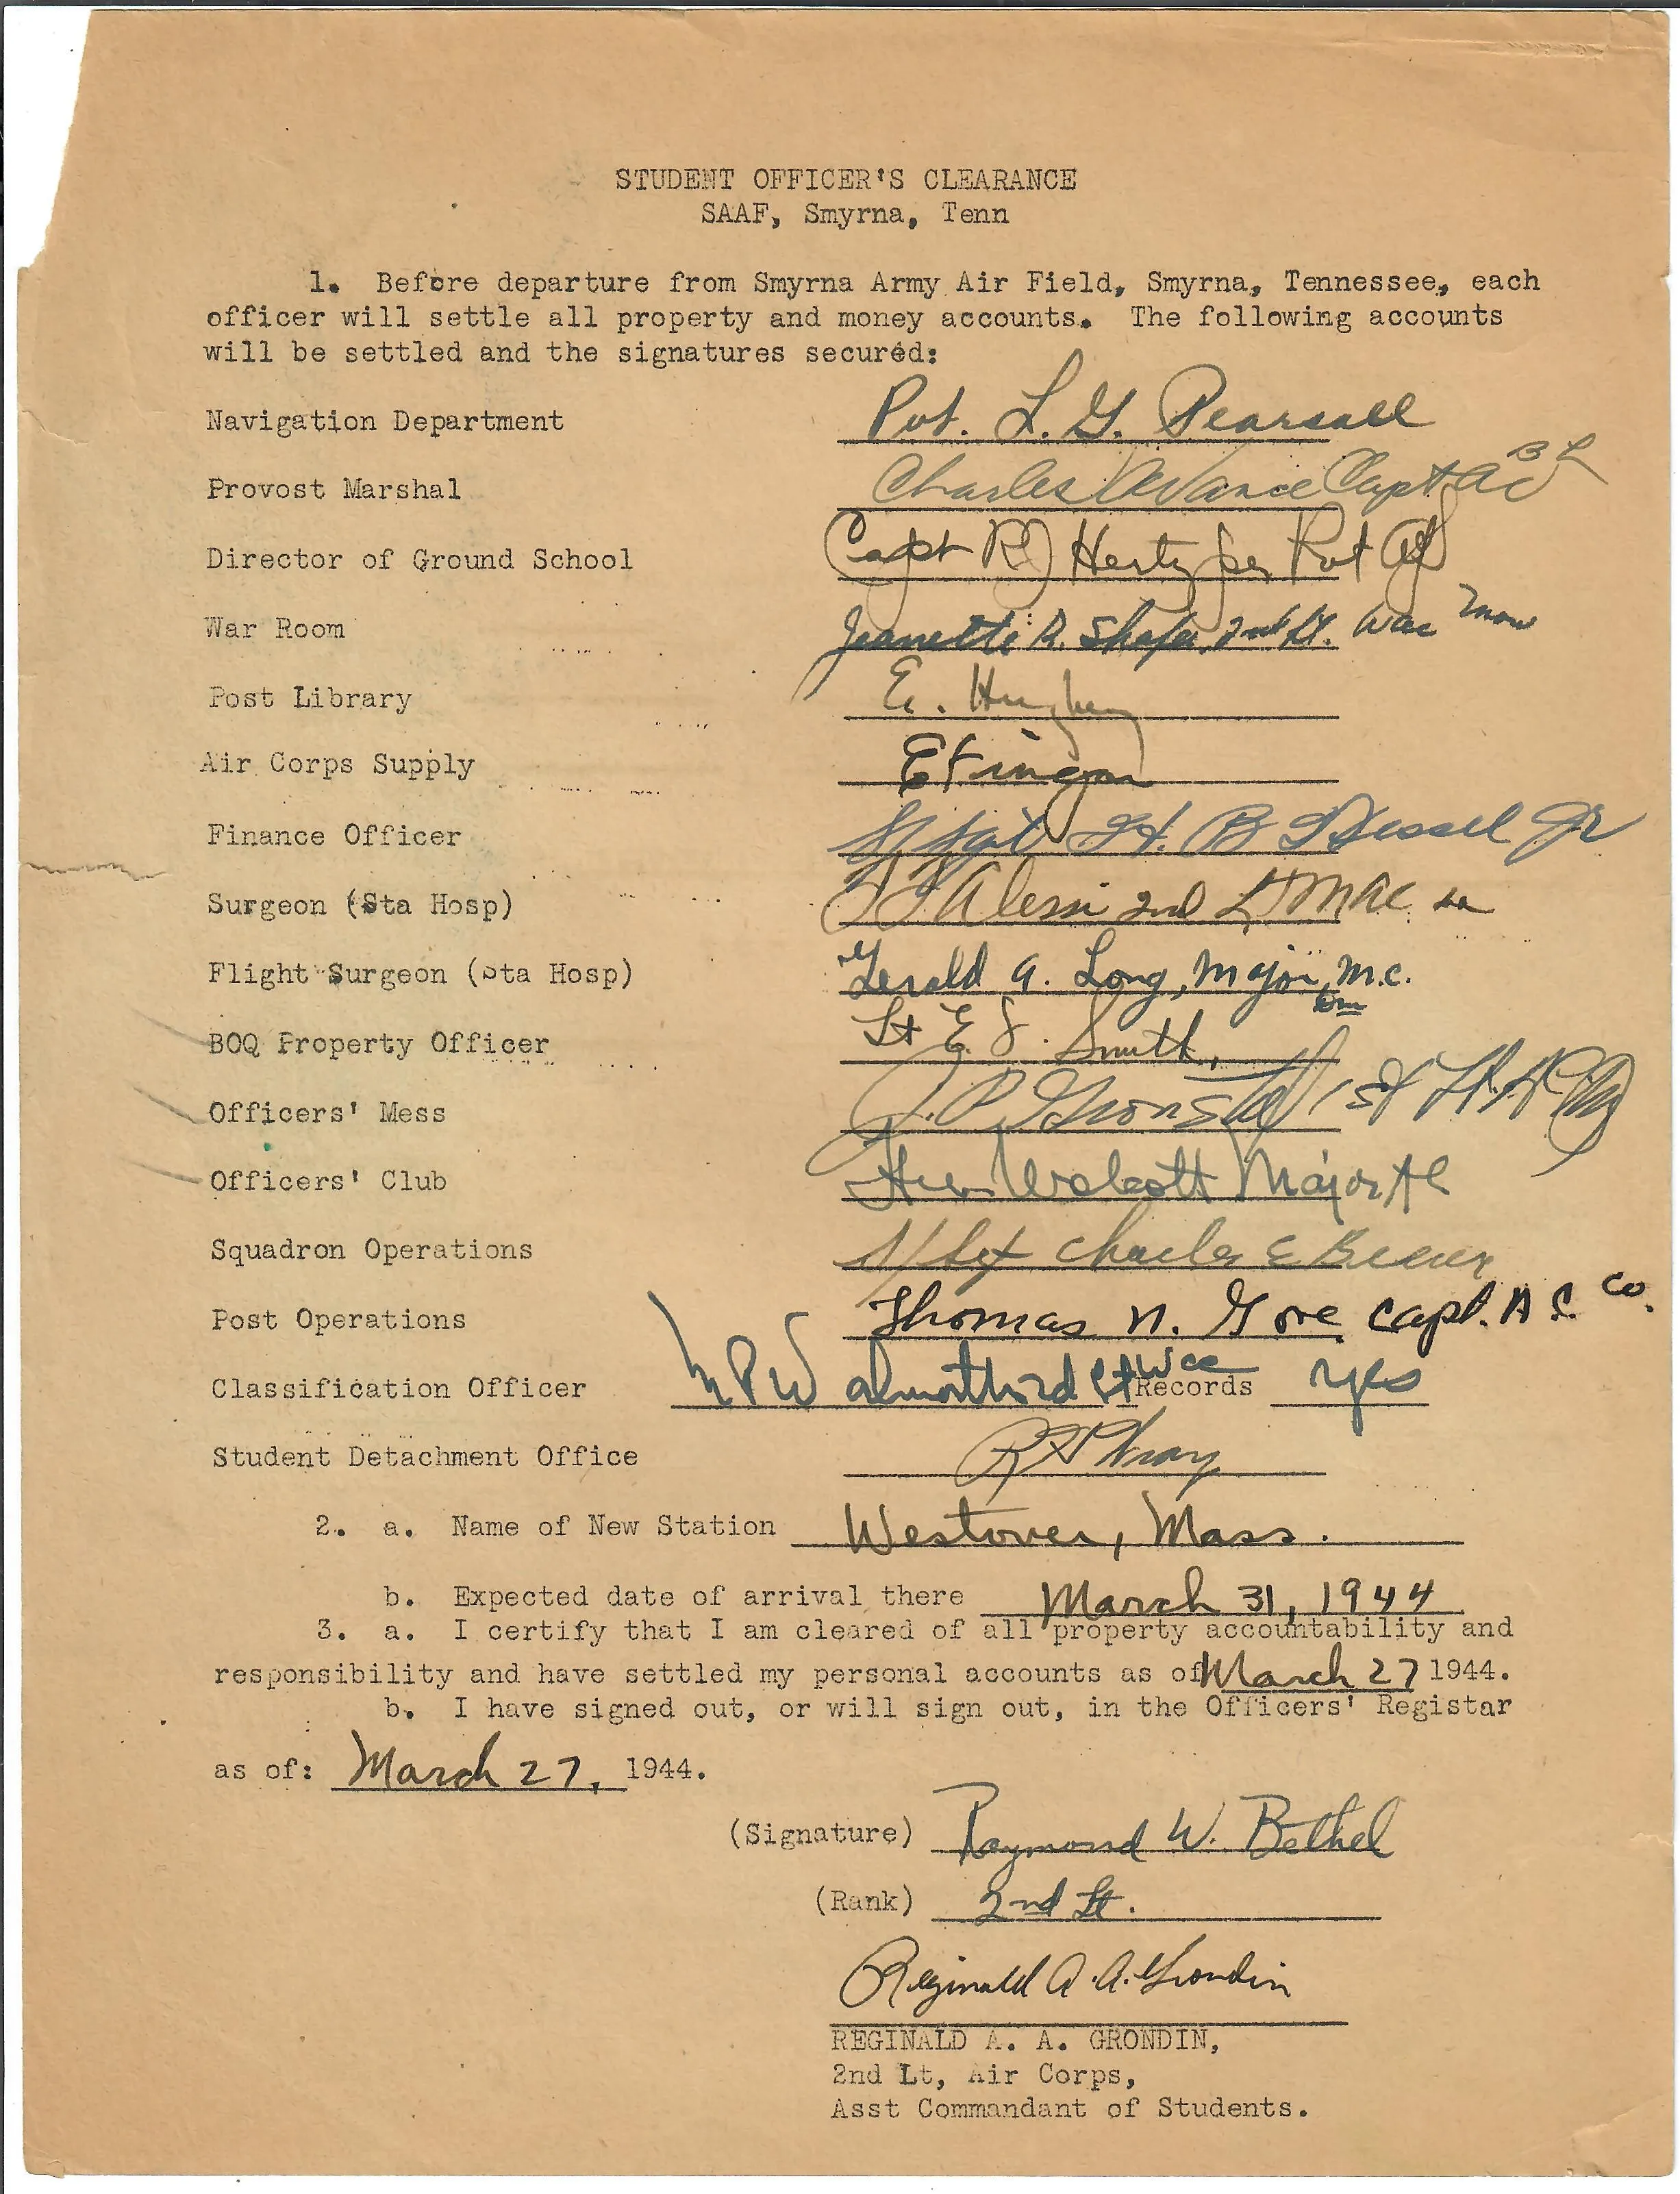 STUDENT OFFICER'S CLEARANCE
SAAF, Smyrna, Tenn
1. Before departure from Smyrna Army Air Field, Smyrna, Tennessee, each
officer will settle all property and money accounts. The following accounts
will be settled and the signatures secured:
Navigation Department Pvt. L. G. Pearsall
Provost Marshal Charles Vance Capt AC
Director of Ground School Capt Hertz per Pvt
War Room Jeanette R. Shafer, 2nd Lt. Wac
Post Library E.
Air Corps Supply
Finance Officer S/Sgt H. B Jr
Surgeon (Sta Hosp) Alessi 2nd Lt MAC
Flight Surgeon (Sta Hosp) Gerald A. Long, Major, M.C.
BOQ Property Officer Lt E. J. Smith,
Officers' Mess 1st Lt.
Officers' Club Walcott Major AC
Squadron Operations S/Sgt Charles E
Post Operations Thomas N. Gore Capt. A C. Co.
Classification Officer Records yes
Student Detachment Office Wray
2. a. Name of New Station Westover, Mass.
b. Expected date of arrival there March 31, 1944
3. a. I certify that I am cleared of all property accountability and
responsibility and have settled my personal accounts as of March 27 1944.
b. I have signed out, or will sign out, in the Officers' Registar
as of: March 27, 1944.
(Signature) Raymond W. Bethel
(Rank) 2nd Lt.
Reginald A. A. Grondin
REGINALD A. A. GRONDIN,
2nd Lt, Air Corps,
Asst Commandant of Students.